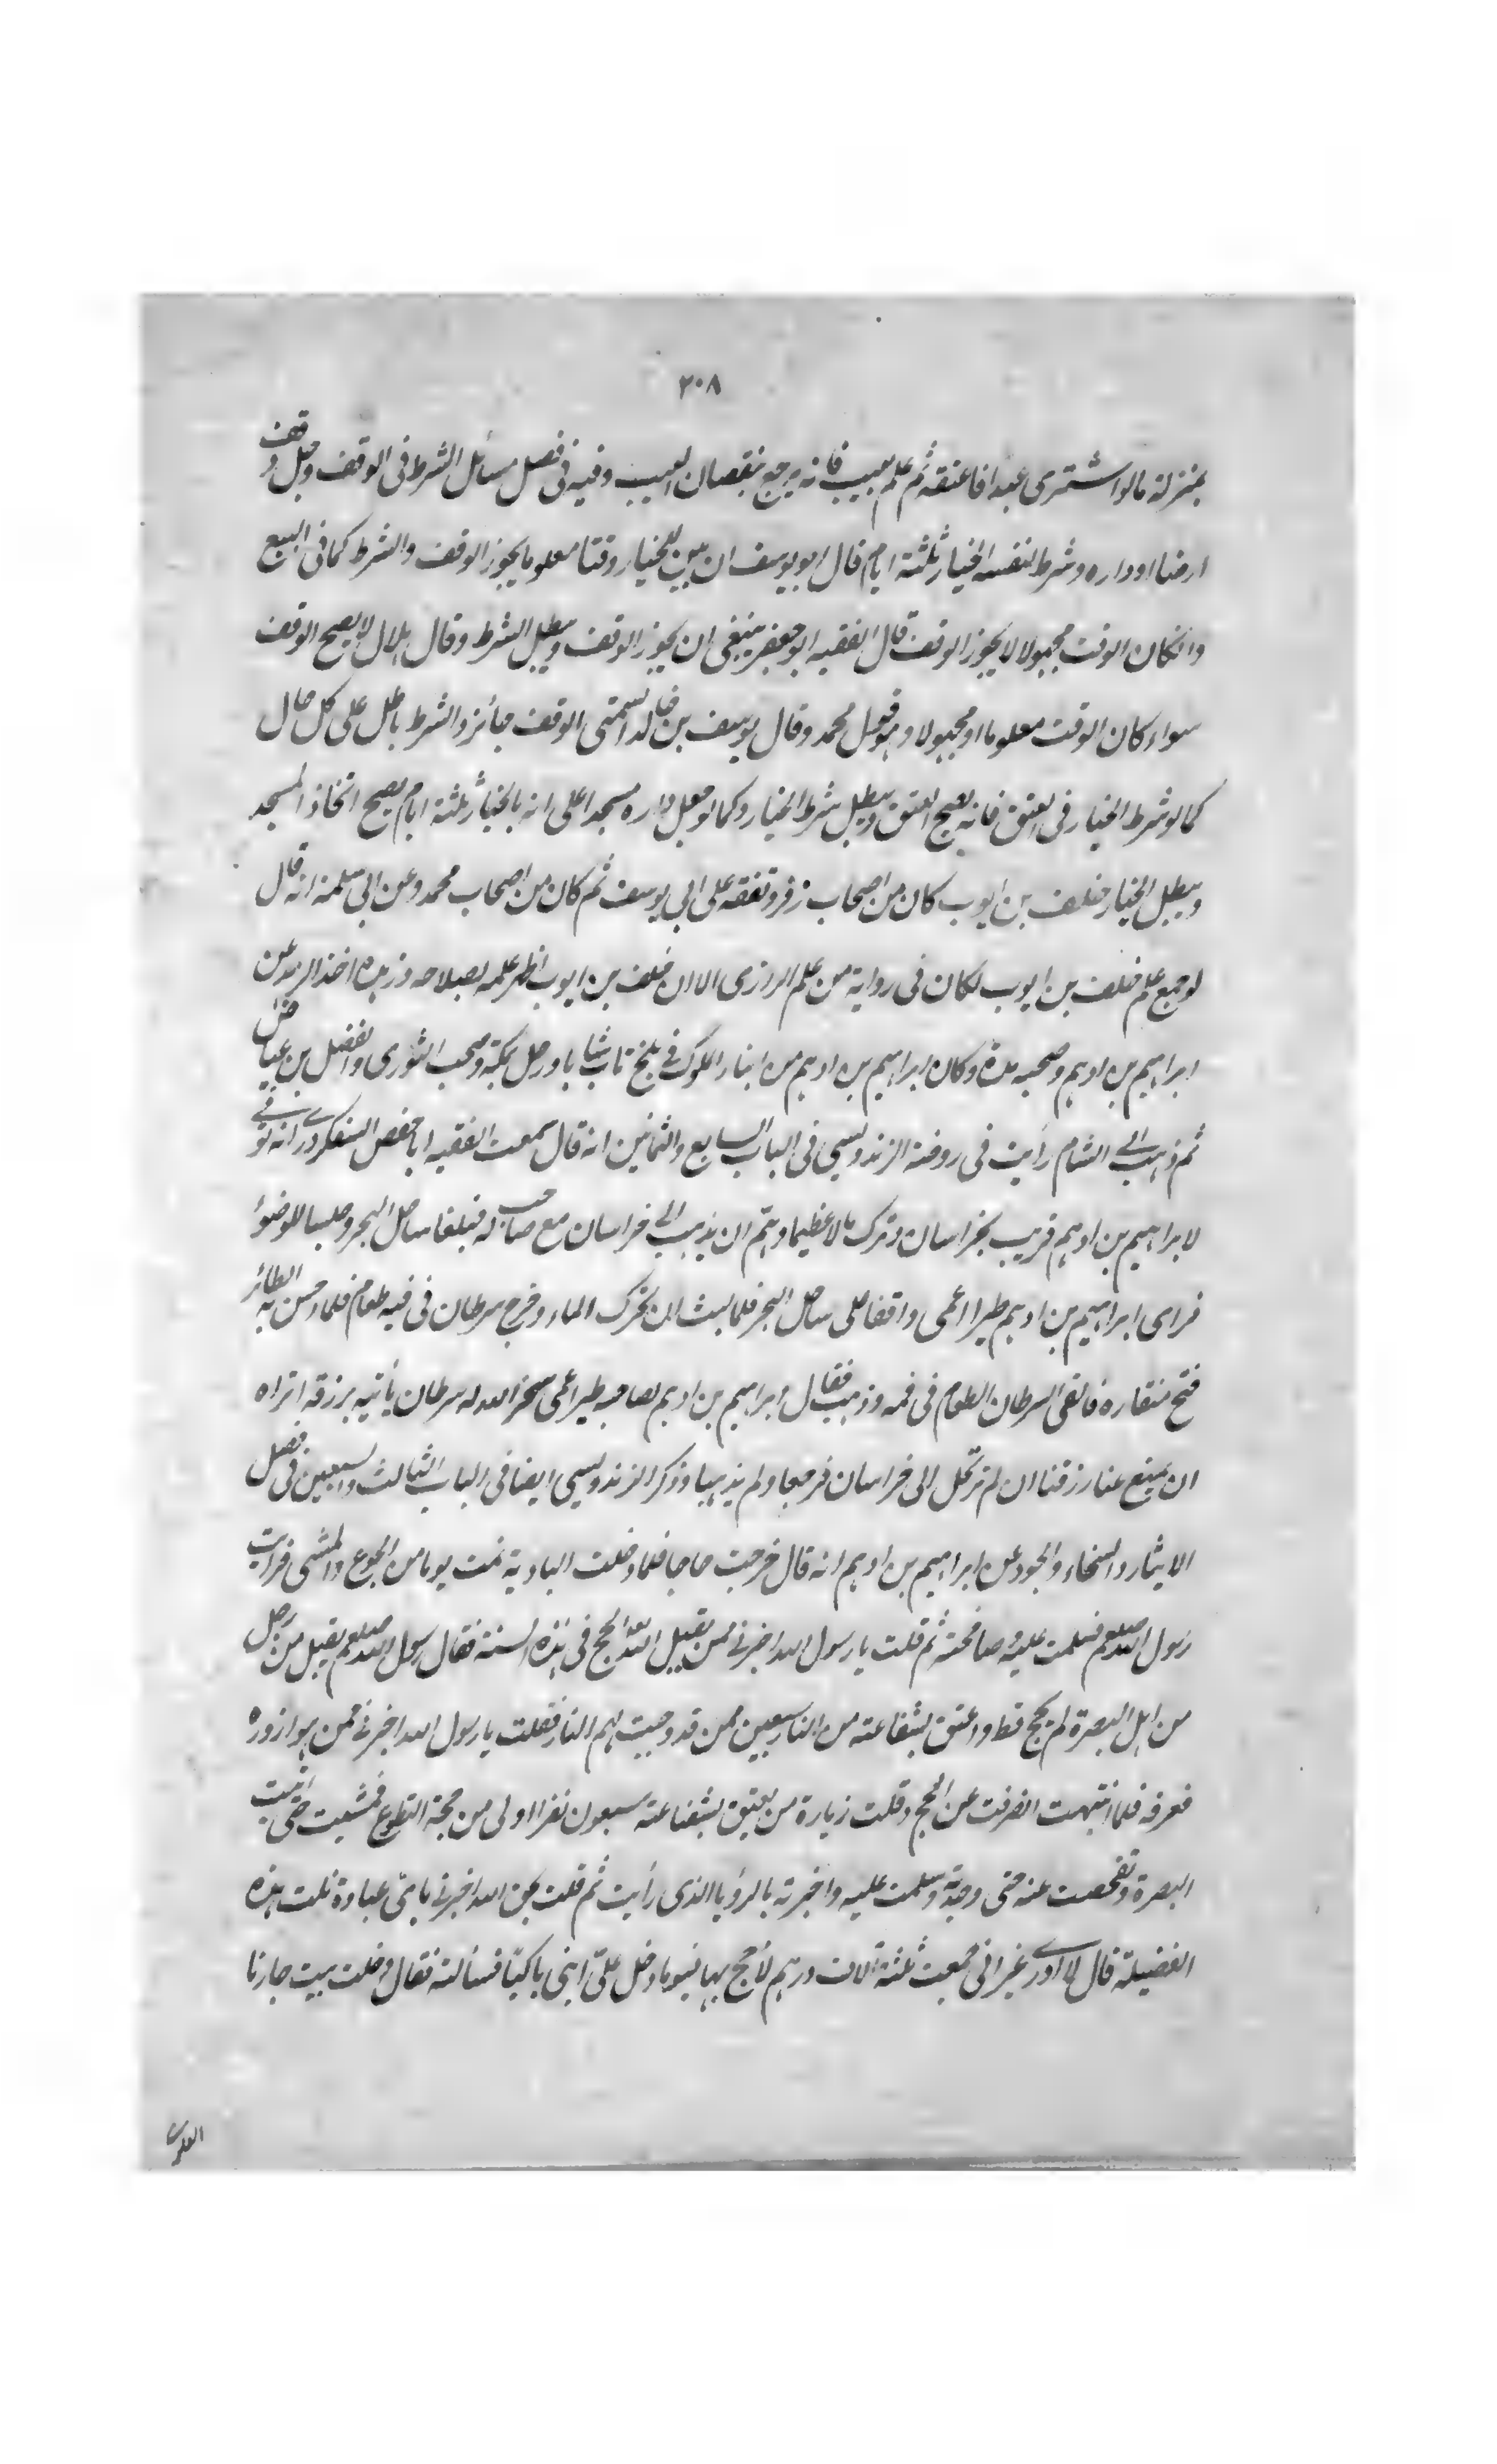 ٢٠٨
بمنزلة ما لو اشترى عبدا فاعتقه ثم علم بعيب فانه يرجع بنقصان العيب وفيه فى فصل مسائل الشرط فى الوقف رجل وقف
ارضا او داره وشرط لنفسه الخيار ثلثة ايام قال ابو يوسف ان بين للخيار وقتا معلوما يجوز الوقف والشرط كما فى البيع
وانكان الوقت مجهولا لا يجوز الوقف قال الفقيه ابو جعفر ينبغى ان يجوز الوقف ويبطل الشرط وقال هلال لا يصح الوقف
سواء كان الوقت معلوما او مجهولا وهو قول محمد وقال يوسف بن خالد السمتى الوقف جائز والشرط باطل على كل حال
كما لو شرط الخيار فى العتق فانه يصح العتق ويبطل شرط الخيار وكما لو جعل داره مسجدا على انه بالخيار ثلثة ايام يصح اتخاذ المسجد
ويبطل الخيار خلف بن ايوب كان من اصحاب زفر وتفقه على ابى يوسف ثم كان من اصحاب محمد وعن ابى سلمة انه قال
لو جمع علم خلف بن ايوب لكان فى رواية من علم الرازى الا ان خلف بن ايوب اظهر علمه بصلاحه وزهده اخذ الزهد عن
ابراهيم بن ادهم وصحبه مدة وكان ابراهيم بن ادهم من ابناء الملوك فى بلخ تاب شابا ورحل بمكة وصحب الثورى والفضل بن عياض
ثم ذهب الى الشام رأيت فى روضة الزندويسى فى الباب السابع والثمانين انه قال سمعت الفقيه ابا حفص السفكردرى انه توفى
لابراهيم بن ادهم قريب بخراسان وترك مالا عظيما وهم ان يذهب الى خراسان مع صاحب له فبلغا ساحل البحر وجلسا للوضوء
فراى ابراهيم بن ادهم طيرا اعمى واقفا على ساحل البحر فلما لبث ان تحرك الماء وخرج سرطان فى فيه طعام فلما احسن به الطائر
فتح منقاره فالقى السرطان الطعام فى فمه وذهب فقال ابراهيم بن ادهم لصاحبه طير اعمى سخر الله له سرطان يأتيه برزقه اتراه
ان يمنع عنا رزقنا ان لم نرحل الى خراسان فرجعا ولم يذهبا وذكر الزندويسى ايضا فى الباب الثالث والسبعين فى فصل
الايثار والسخاء والجود عن ابراهيم بن ادهم انه قال خرجت حاجا فلما دخلت البادية نمت يوما من الجوع والمشى فرايت
رسول الله صلعم فسلمت عليه وصافحته ثم قلت يا رسول الله اخبرنى ممن يقبل الله الحج فى هذه السنة فقال رسول الله صلعم يقبل من رجل
من اهل البصرة لم يحج قط واعتق بشفاعته من النار سبعين ممن قد وجبت لهم النار فقلت يا رسول الله اخبرنى ممن هو ازوره
فعرفه فلما انتبهت انصرفت عن الحج وقلت زيارة من يعتق بشفاعته سبعون نفرا اولى من حجة التطوع فمشيت حتى اتيت
البصرة وتفحصت عنه حتى وجدته وسلمت عليه واخبرته بالرؤيا الذى رأيت ثم قلت بحق الله اخبرنى باىّ عبادة نلت هذه
الفضيلة قال لا ادرى غير انى جمعت ثلثة آلاف درهم لأحج بها فيوما دخل علىّ ابنى باكيّا فسألته فقال دخلت بيت جارنا